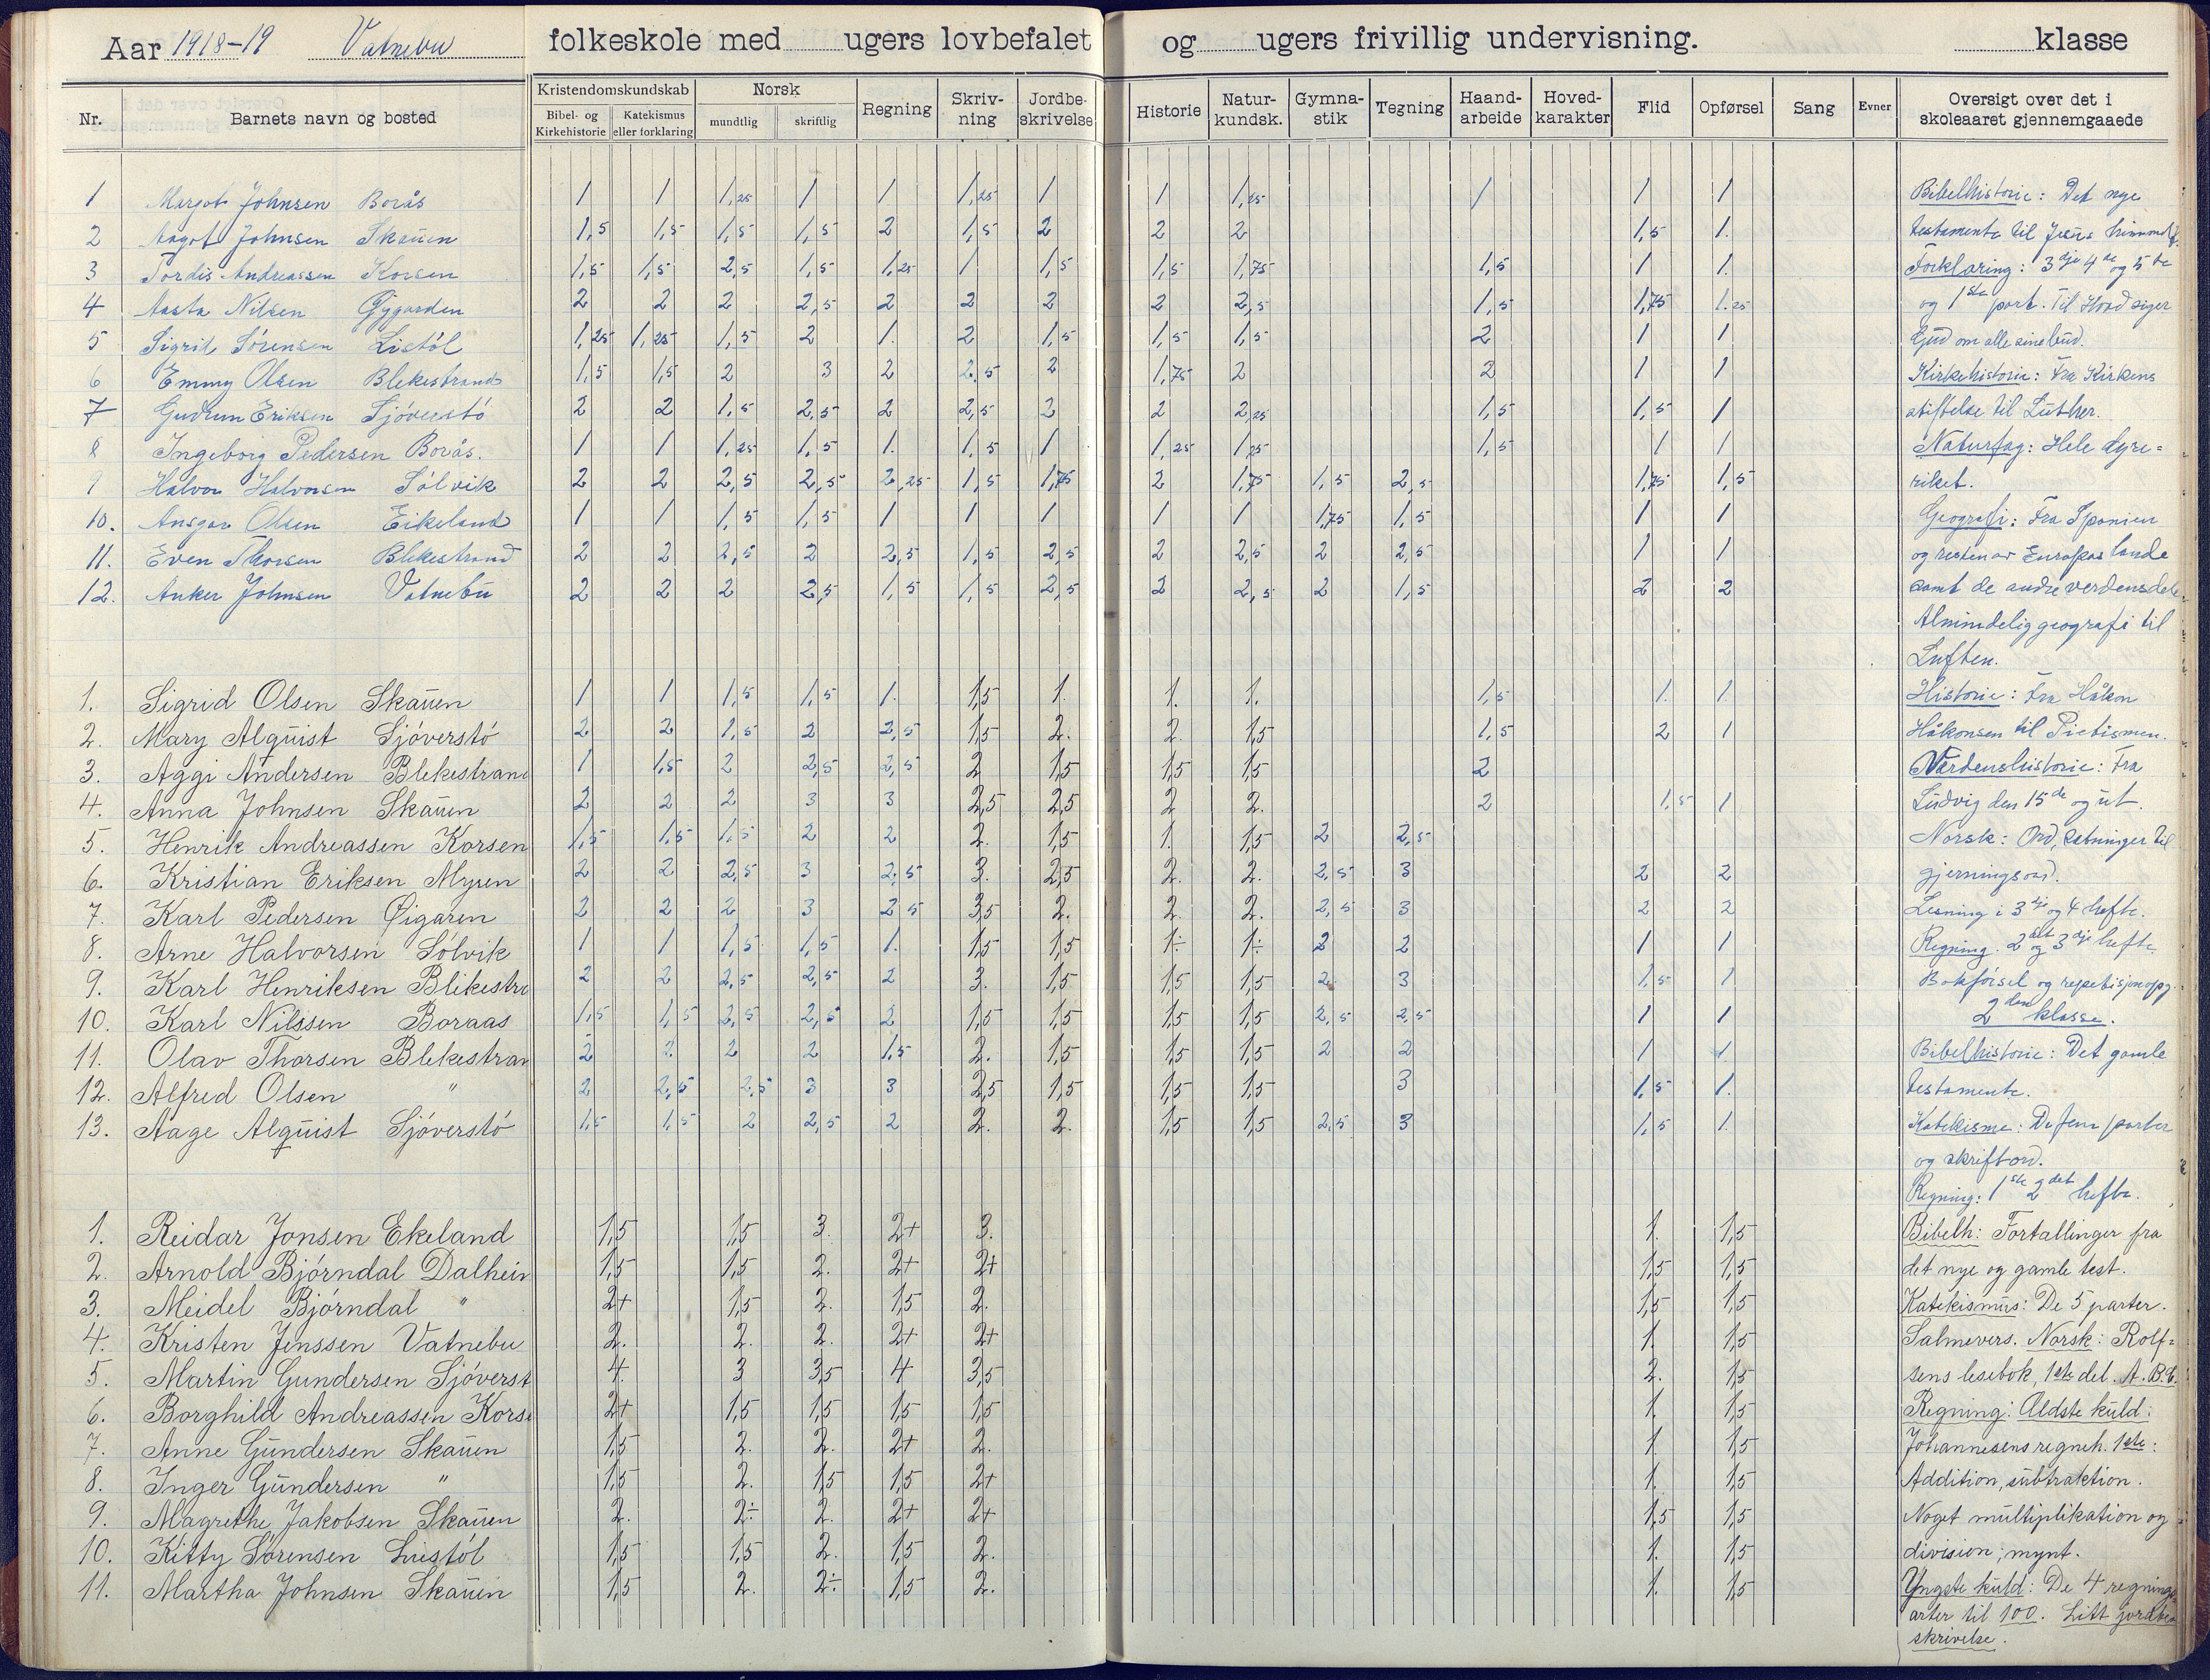 Aar 1918-19 Vatnebu folkeskole med ugers lovbefalet og ugers frivillig undervisning. klasse
Nr. Barnets navn og bosted Kristendomskundskab Bibel- og Kirkehistorie Katekismus eller forklaring Norsk mundtlig skriftlig Regning Skriv-ning Jordbe-skrivelse Historie Natur-kundsk. Gymna-stik Tegning Haand-arbeide Hoved-karakter Flid Opførsel Sang Evner Oversigt over det i skoleaaret gjennemgaaede
1 Margot Johnsen Borås 1 1 1,25 1 1 1,25 1 1 1,25 1 1 1 Bibelhistorie: Det nye
2 Aagot Johnsen Skauen 1,5 1,5 1,5 1,5 2 1,5 2 2 2 1,5 1. testamente til Jesus himmelf.
3 Tordis Andreassen Korsen 1,5 1,5 2,5 1,5 1,25 1 1,5 1,5 1,75 1,5 1 1. Forklaring: 3dje 4de og 5te
4 Aasta Nilsen Gjygarden 2 2 2 2,5 2 2 2 2 2,5 1,5 1,75 1.25 og 1ste part. Til Hvad siger
5 Sigrid Sörensen Listöl 1,25 1,25 1,5 2 1. 2 1,5 1,5 1,5 2 1 1 Gud om alle sine bud.
6 Emmy Olsen Blekestrand 1,5 1,5 2 3 2 2,5 2 1,75 2 2 1 1 Kirkehistorie: Fra Kirkens
7 Gudrun Eriksen Sjöverstö 2 2 1,5 2,5 2 2,5 2 2 2,25 1,5 1,5 1 stiftelse til Luther.
8 Ingeborg Pedersen Borås. 1 1 1,25 1,5 1. 1,5 1 1,25 1,25 1,5 1 1 Naturfag: Hele dyre=
9 Halvor Halvorsen Sölvik 2 2 2,5 2,5 2,25 1,5 1,75 2 1,75 1,5 2,5 1,75 1,5 riket.
10. Ansgar Olsen Eikeland 1 1 1,5 1,5 1 1 1 1 1 1,75 1,5 1 1 Geografi: Fra Spanien
11. Even Thorsen Blekestrand 2 2 2,5 2 2,5 1,5 2,5 2 2,5 2 2,5 1 1 og resten av Europas lande
12. Anker Johnsen Vatnebu 2 2 2 2,5 1,5 1,5 2,5 2 2,5 2 1,5 2 2 samt de andre verdensdele.
Almindelig geografi til
Luften.
1. Sigrid Olsen Skauen 1 1 1,5 1,5 1. 1,5 1. 1. 1. 1,5 1. 1. Historie: Fra Håkon
2. Mary Alquist Sjöverstö 2 2 1,5 2 2,5 1,5 2. 2. 1,5 1,5 2 1 Håkonsen til Pietismen.
3. Aggi Andersen Blekestrand 1 1,5 2 2,5 2,5 2 1,5 1,5 1,5 2 Verdenshistorie: Fra
4. Anna Johnsen Skauen 2 2 2 3 3 2,5 2,5 2 2. 2 1,5 1 Ludvig den 15de og ut.
5. Henrik Andreassen Korsen 1,5 1,5 1,5 2 2 2. 1,5 1. 1,5 2 2,5 Norsk: Ord, setninger til
6. Kristian Eriksen Myren 2 2 2,5 3 2,5 3. 2,5 2. 2. 2,5 3 2 2 gjerningsord.
7. Karl Pedersen Öigaren 2 2 2 3 2 5 3,5 2. 2. 2. 2,5 3 2 2 Lesning i 3dje og 4 hefte.
8. Arne Halvorsen Sölvik 1 1 1,5 1,5 1. 1,5 1,5 1÷ 1÷ 2 2 1 1 Regning. 2det og 3dje hefte
9. Karl Henriksen Blikestra 2 2 2,5 2,5 2 3. 1,5 1,5 1,5 2 3 1,5 1 Bokförsel og repetisjonopg.
10. Karl Nilssen Boraas 1,5 1,5 2,5 2,5 2 1,5 1,5 1,5 1,5 2,5 2,5 1 1 2den klasse.
11. Olav Thorsen Blekestran 2 2 2 2 1,5 2. 1,5 1,5 1,5 2 2 1 1. Bibelhistorie: Det gamle
12. Alfred Olsen " 2 2,5 2,5 3 3 2,5 1,5 1,5 1,5 3 1,5 1. testamente.
13. Aage Alquist Sjöverstö 1,5 1,5 2 2,5 2 2. 2. 1,5 1,5 2,5 3 1,5 1. Katekisme: De fem parter
og skriftord.
Regning: 1ste 2det hefte.
1. Reidar Jonsen Ekeland 1,5 1,5 3. 2+ 3. 1. 1,5 Bibelh: Fortællinger fra
2. Arnold Bjørndal Dalheim 1,5 1,5 2. 2+ 2+ 1,5 1,5 det nye og gamle test.
3. Meidel Bjørndal " 2+ 1,5 2. 1,5 2. 1,5 1,5 Katekismus: De 5 parter.
4. Kristen Jenssen Vatnebu 2. 2. 2. 2+ 2+ 1. 1,5 Salmevers. Norsk: Rolf=
5. Martin Gundersen Sjöverst 4. 3 3,5 4 3,5 2. 1,5 sens lesebok, 1ste del. A.B.C.
6. Borghild Andreassen Korse 2+ 1,5 1,5 1,5 1,5 1. 1,5 Regning: Ældste kuld:
7. Anne Gundersen Skauen 1,5 2. 2. 2+ 2. 1. 1,5 Johannesens regneh. 1ste:
8. Inger Gundersen " 1,5 2. 1,5 1,5 2+ 1. 1,5 Addition, subtraktion.
9. Magrethe Jakobsen Skauen 2. 2÷ 2. 2+ 2+ 1,5 1,5 Noget multiplikation og
10. Kitty Sørensen Liistöl 1,5 1,5 2. 1,5 2. 1. 1,5 division; mynt.
11. Martha Johnsen Skauen 1,5 2. 2÷ 1,5 2. 1. 1,5 Yngste kuld: De 4 regnings
arter til 100. Litt jordbe=
skrivelse.